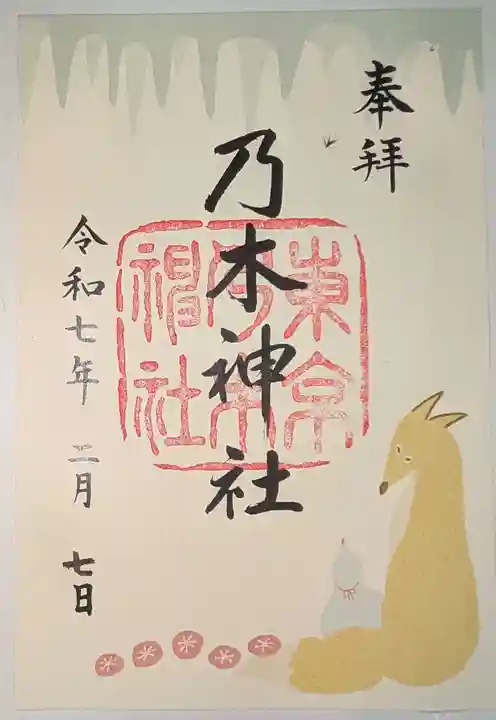 奉拝
乃木神社
東京
乃木
神社
令和七年 二月 七日